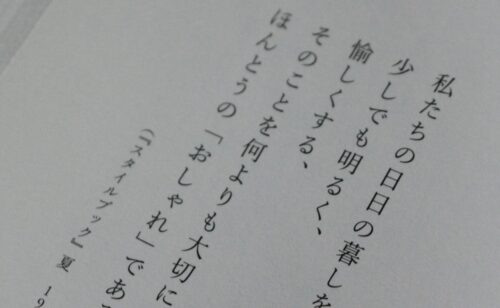 私たちの日日の暮しを
少しでも明るく、
愉しくする、
そのことを何よりも大切に
ほんとうの「おしゃれ」であ
(『スタイルブック』夏 19